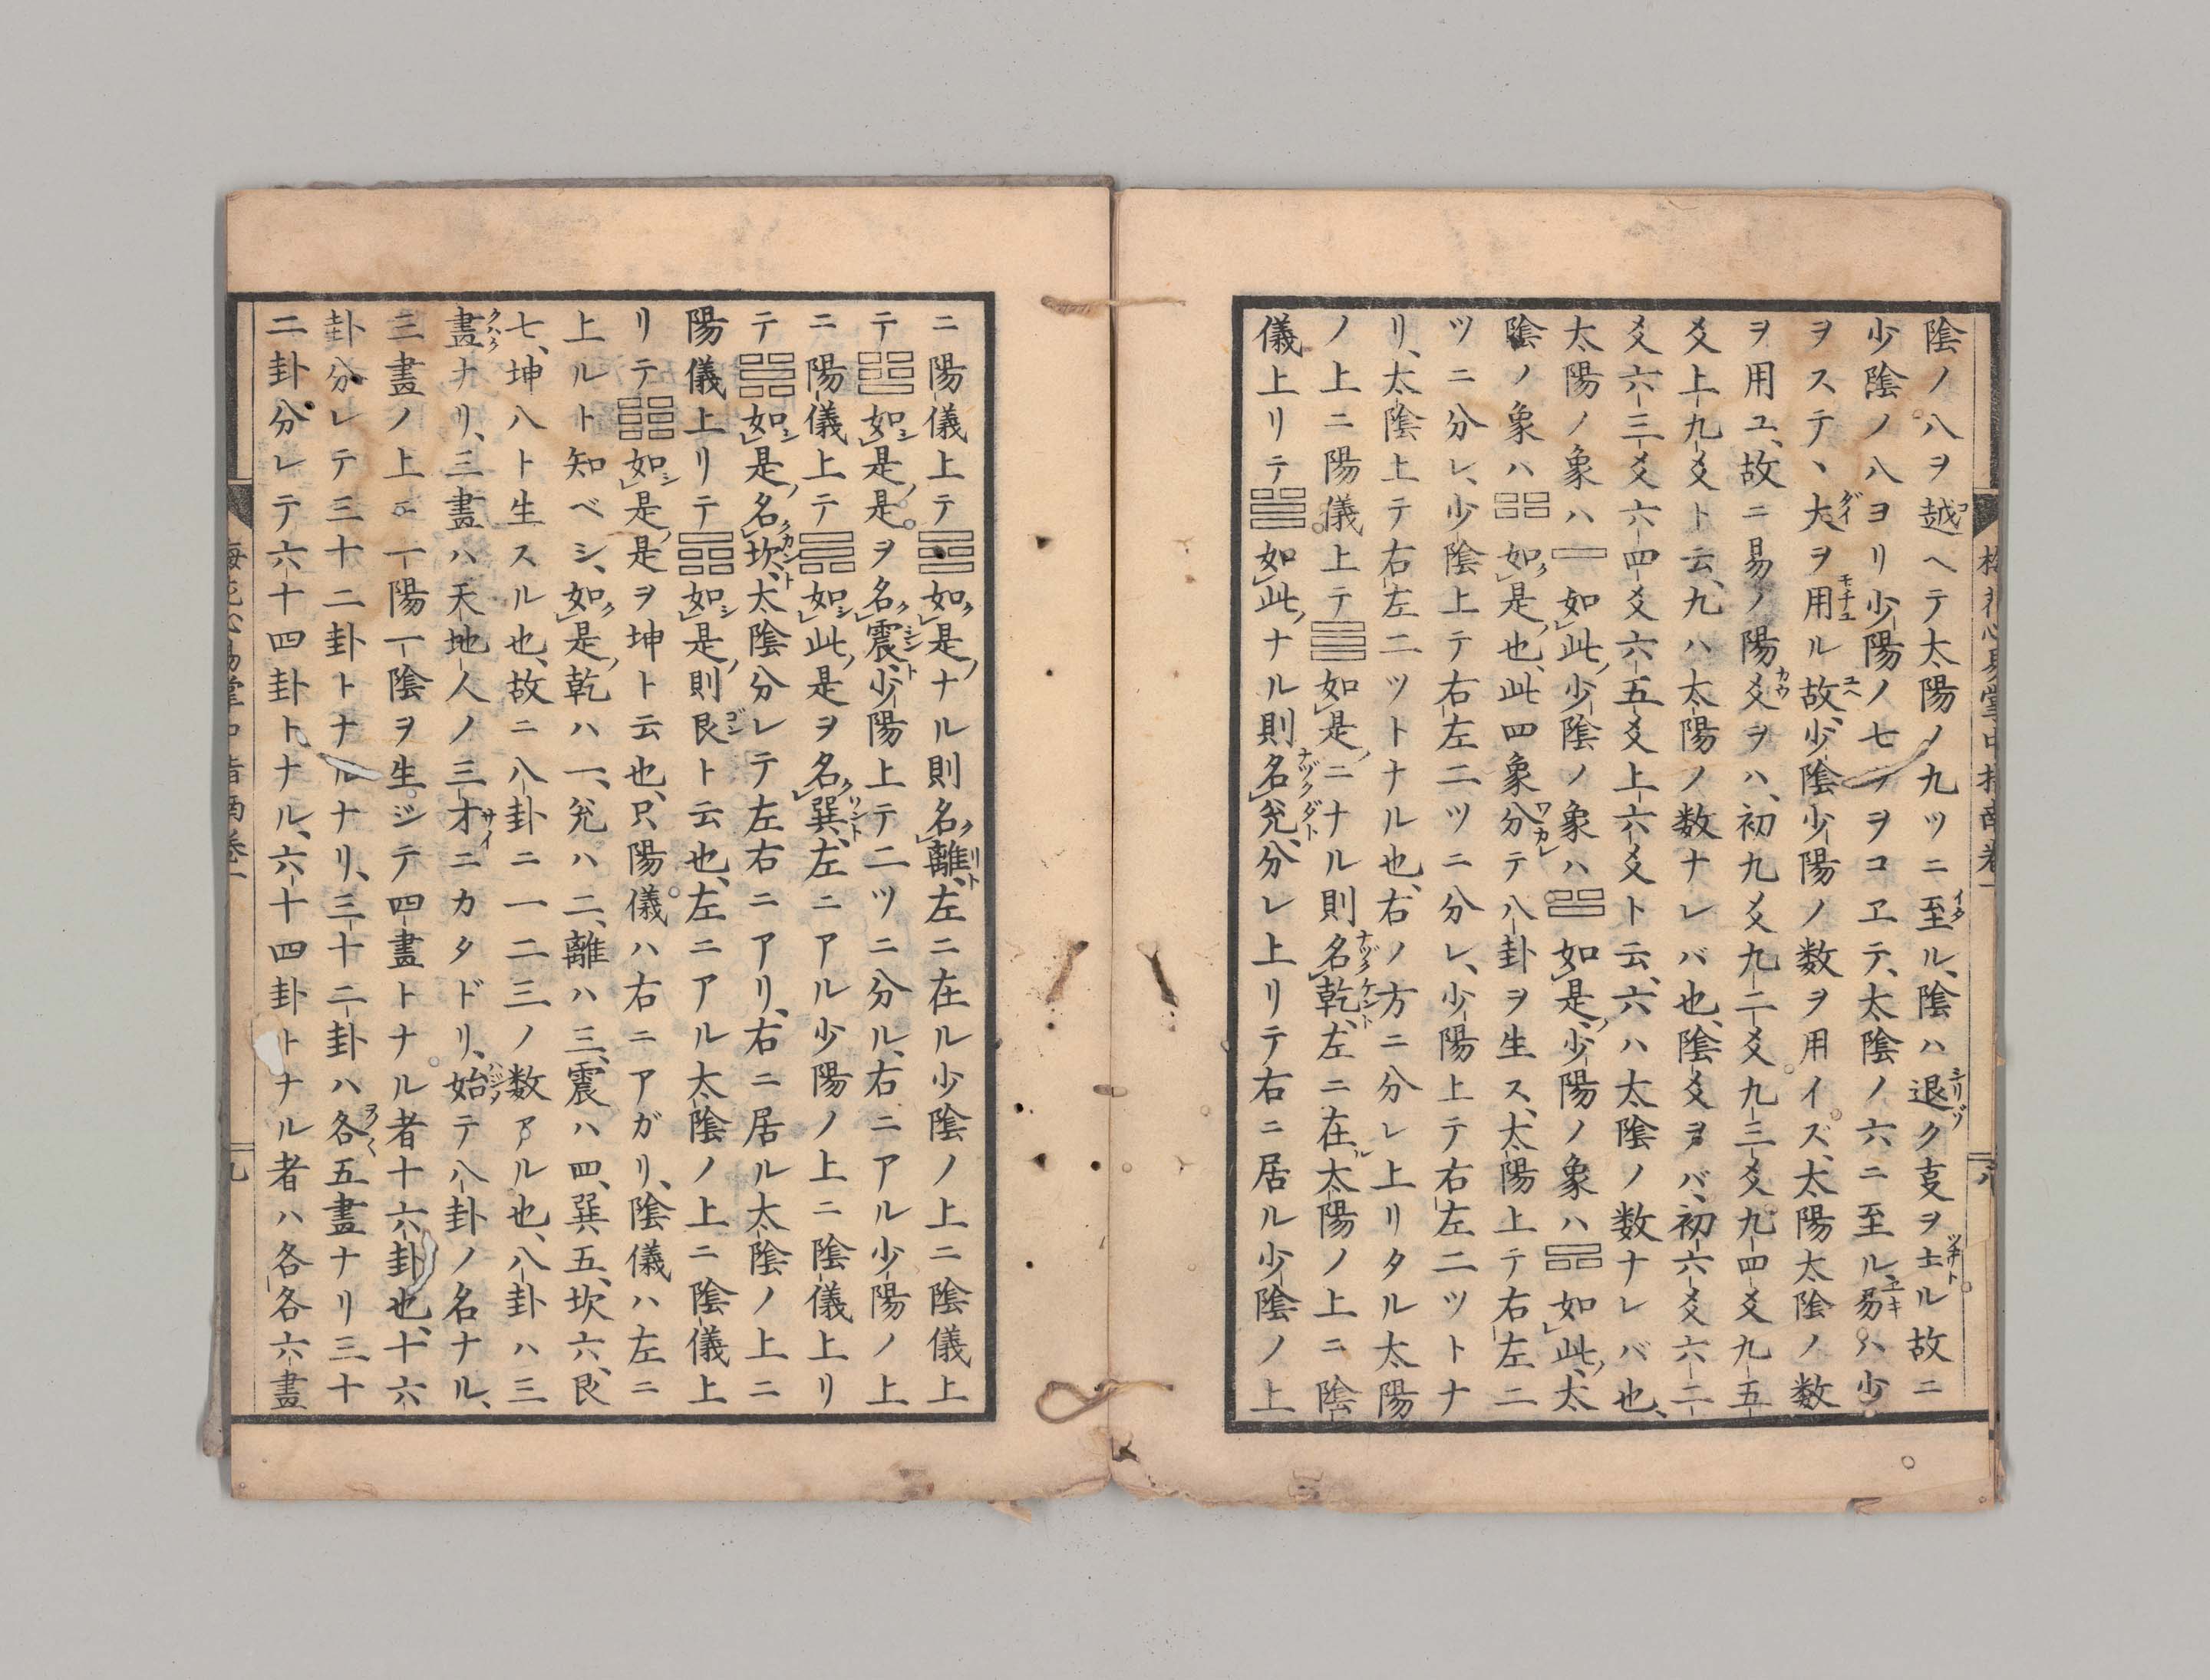 陰ノ八ヲ越ヘテ太陽ノ九ツニ至ル、陰ハ退ク㕝ヲ士ル故ニ
少陰ノ八ヨリ少陽ノ七ツヲコヱテ、太陰ノ六ニ至ル、易ハ少
ヲステヽ大ヲ用ル故、少陰少陽ノ数ヲ用イズ、太陽太陰ノ数
ヲ用ユ、故ニ易ノ陽爻ヲハ、初九爻九二爻九三爻九四爻九五
爻上九爻ト云、九ハ太陽ノ数ナレバ也、陰爻ヲバ、初六爻六二
爻六三爻六四爻六五爻上六爻ト云、六ハ太陰ノ数ナレバ也、
太陽ノ象ハ⚌如此、少陰ノ象ハ⚍如是、少陽ノ象ハ⚎如此、太
陰ノ象ハ⚏如是也、此四象分テ八卦ヲ生ス、太陽上テ右左二
ツニ分レ、少陰上テ右左二ツニ分レ、少陽上テ右左二ツトナ
リ、太陰上テ右左二ツトナル也、右ノ方ニ分レ上リタル太陽
ノ上ニ陽儀上テ☰如是ニナル則名乾、左ニ在ル太陽ノ上ニ陰
儀上リテ☱如此ナル則名兊、分レ上リテ右ニ居ル少陰ノ上
ニ陽儀上テ☲如是ナル則名離、左ニ在ル少陰ノ上ニ陰儀上
テ☳如是。是ヲ名震、少陽上テ二ツニ分ル、右ニアル少陽ノ上
ニ陽儀上テ☴如此、是ヲ名巽、左ニアル少陽ノ上ニ陰儀上リ
テ☵如是、名坎、太陰分レテ左右ニアリ、右ニ居ル太陰ノ上ニ
陽儀上リテ☶如是、則艮ト云也、左ニアル太陰ノ上ニ陰儀上
リテ☷如是、是ヲ坤ト云也、只、陽儀ハ右ニアガリ、陰儀ハ左ニ
上ルト知ベシ、如是乾ハ一、兊ハ二、離ハ三、震ハ四、巽五、坎六、艮
七、坤八ト生スル也、故ニ八卦ニ一二三ノ数アル也、八卦ハ三
畫ナリ、三畫ハ天地人ノ三才ニカタドリ、始テ八卦ノ名ナル、
三畫ノ上ニ一陽一陰ヲ生ジテ四畫トナル者十六卦也、十六
卦分レテ三十二卦トナルナリ、三十二卦ハ各五畫ナリ三十
二卦分レテ六十四卦トナル、六十四卦トナル者ハ各各六畫
九